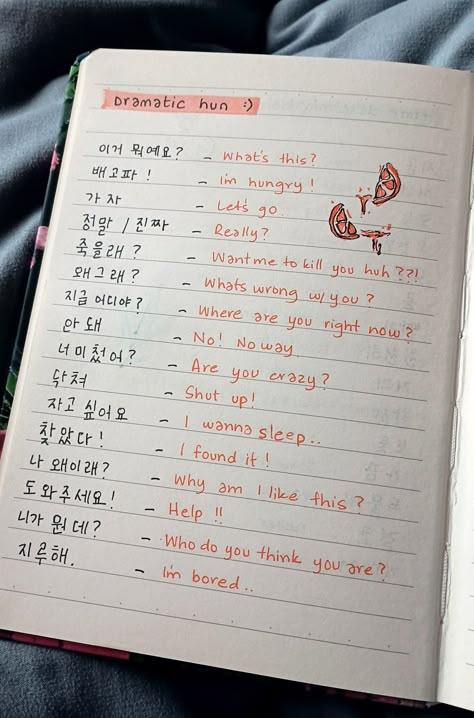 Dramatic hun :)
이거 뭐예요? - What's this?
배고파! - I'm hungry!
가자 - Let's go.
정말 / 진짜 - Really?
죽을래? - Want me to kill you huh??!
왜그래? - Whats wrong w/ you?
지금 어디야? - Where are you right now?
안돼 - No! No way
너 미쳤어? - Are you crazy?
닥쳐 - Shut up!
자고 싶어요 - I wanna sleep..
찾았다! - I found it!
나 왜이래? - Why am I like this?
도와주세요! - Help!!
니가 뭔데? - Who do you think you are?
지루해. - I'm bored..